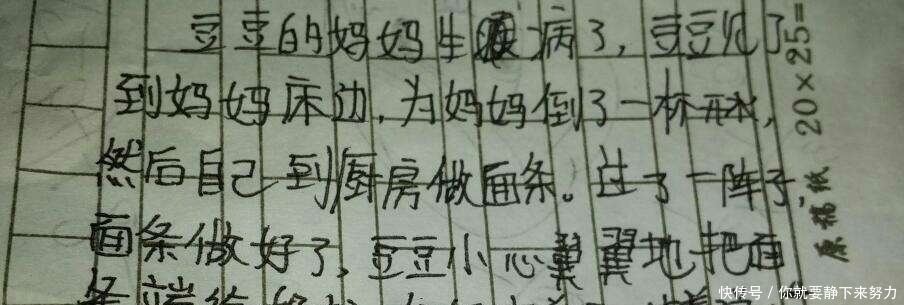 豆豆的妈妈生病了，豆豆
到妈妈床边，为妈妈倒了一杯开水，
然后自己到厨房做面条。过了一阵子
面条做好了，豆豆小心翼翼地把面
条端给
20×25=
原稿纸
快传号 / 你就要静下来努力